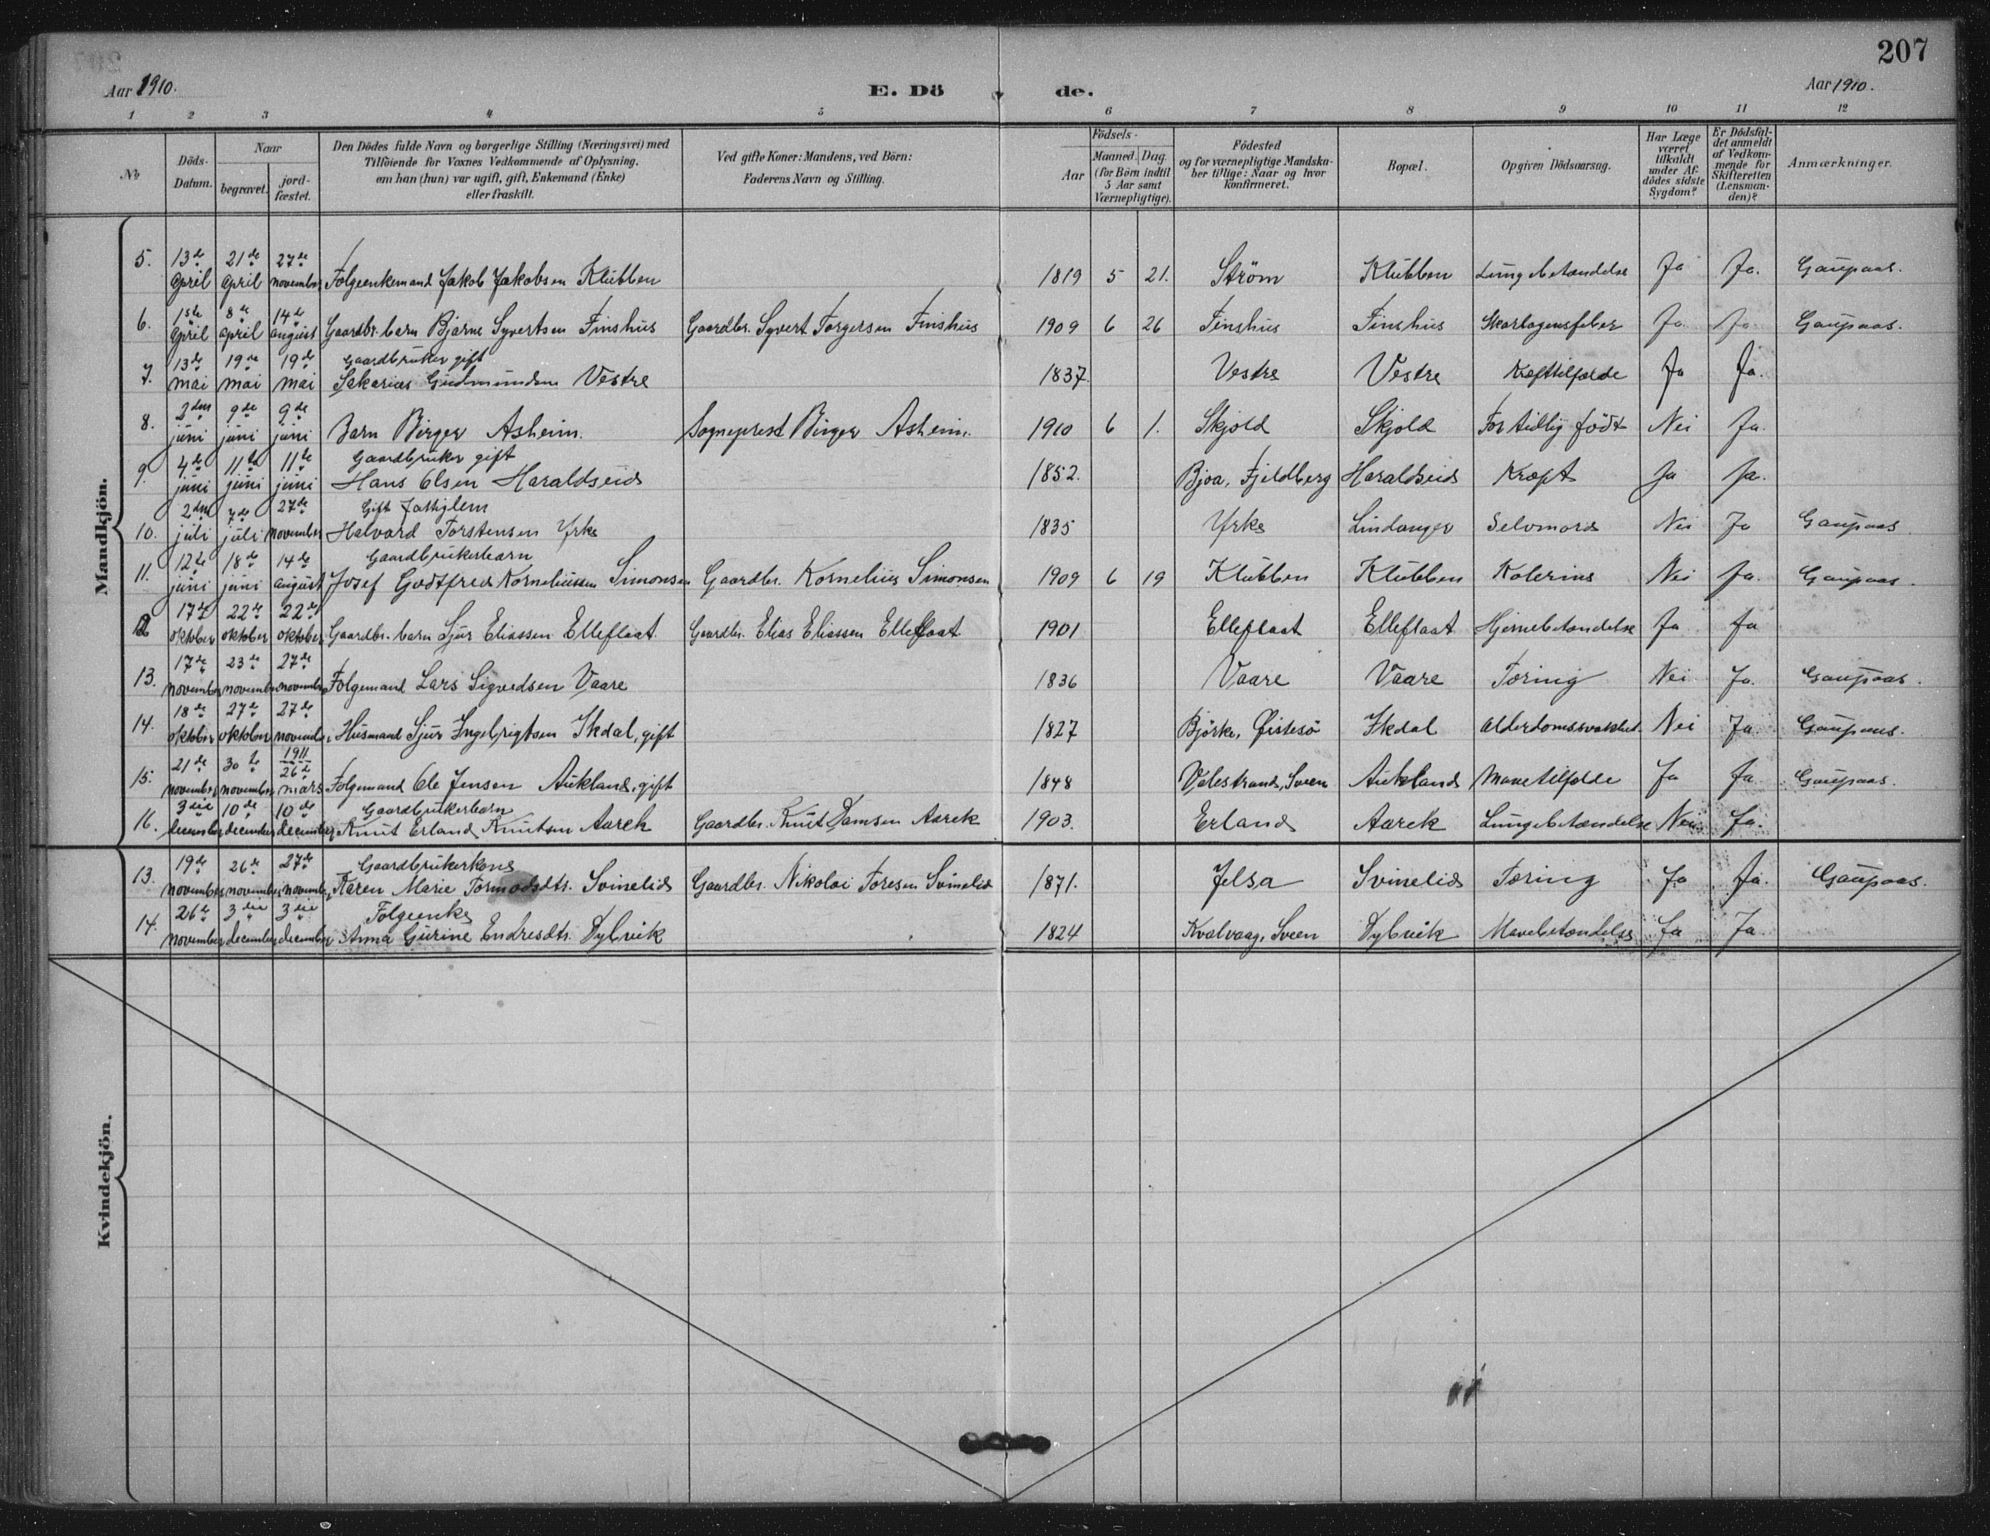 207
Aar 1910.
E. Dö de.
Aar 1910.
1 2 3 4 5 6 7 8 9 10 11 12
No
Döds-Datum.
Naar
begravet.
jord-fæstet.
Den Dödes fulde Navn og borgerlige Stilling (Næringsvei) med
Tilföiende for Voxnes Vedkommende af Oplysning,
om han (hun) var ugift, gift, Enkemand (Enke)
eller fraskilt.
Ved gifte Koner: Mandens, ved Börn:
Faderens Navn og Stilling.
Födsels-
Aar
Maaned. Dag.
(for Börn indtil
5 Aar samt
Værnepligtige).
Födested
og for værnepligtige Mandska-
ber tillige: Naar og hvor
konfirmeret.
Bopæl.
Opgiven Dödsaarsag.
Har Læge
været
tilkaldt
under Af-
dödes sidste
Sygdom?
Er Dödsfal-
det anmeldt
af Vedkom-
mende for
Skifteretten
(Lensman-
den)?
Anmærkninger.
Mandkjön.
5. 13de april 21de april 27de november Folgeenkemand Jakob Jakobsen Klubben 1819 5 21. Ström Klubben Lungebetændelse Ja Ja. Gaupaas.
6. 1ste april 8de april 14de august Gaardbr. barn Bjarne Syvertsen Tinshus Gaardbr. Syvert Torgersen Tinshus 1909 6 26 Tinshus Tinshus Skarlagensfeber Ja Ja Gaupaas.
7. 13de mai 19de mai 19de mai Gaardbruker gift
Sakarias Gudmundsen Vestre 1837 Vestre Vestre Kræfttilfælde Ja Ja.
8. 2den juni 9de juni 9de juni Barn Birger Asheim. Sogneprest Birger Asheim. 1910 6 1. Skjold Skjold For tidlig födt Nei Ja.
9. 4de juni 11te juni 11te juni Gaardbruker gift
Hans Olsen Haraldseid 1852. Bjoa, Fjeldberg Haraldseid Kræft Ja Ja.
10. 2den juli 7de juli 27de november Gift Fattiglem
Halvard Torstensen Yrke 1835 Yrke Lindanger Selvmord Nei Ja Gaupaas.
11. 12te juni 18de juni 14de august Gaardbrukerbarn
Josef Godtfred Korneliussen Simonsen Gaardbr. Kornelius Simonsen 1909 6 19 Klubben Klubben Kolerine Nei Ja. Gaupaas.
12 17de oktober 22de oktober 22de oktober Gaardbr. barn Sjur Eliassen Elleflaat Gaardbr. Elias Eliassen Elleflaat 1901 Elleflaat Elleflaat Hjernebetændelse Ja Ja
13. 17de november 23de november 27de november Folgemand Lars Sigvedsen Vaare 1836 Vaare Vaare Tæring Nei Ja. Gaupaas.
14. 18de oktober 27de oktober 27de november Husmand Sjur Ingebrigtsen Ilsdal, gift 1827 Björke, Östesö Ilsdal Alderdomssvakhet Nei Ja. Gaupaas.
15. 21de november 30te november 1911 26de mars Folgemand Ole Jensen Aukland, gift 1848 Valestrand, Sveen Aukland Mavetilfælde Ja Ja. Gaupaas.
16. 3die december 10de december 10de december Gaardbrukerbarn
Knut Erland Knutsen Aarek Gaardbr. Knut Aarek 1903. Erland Aarek Lungebetændelse Nei Ja.
Kvindekjön.
13. 19de november 26de november 27de november Gaardbrukerkone
Karen Marie Tormodsdtr. Svinelid Gaardbr. Nikolai Toresen Svinelid 1871. Jelsa Svinelid Tæring Ja Ja. Gaupaas.
14. 26de november 3die december 3die december Folgeenke
Anna Gurine Endresdtr. Dybvik 1824 Kvalvaag, Sveen Dybvik Mavebetændelse Ja Ja.